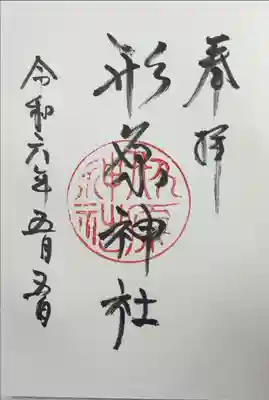 奉拝
形原神社
令和六年五月五日